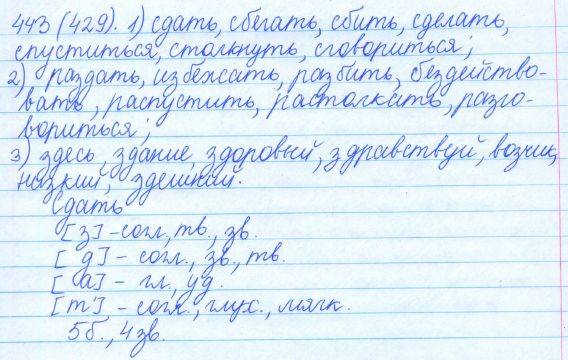 443 (429). 1) сдать, сбегать, сбить, сделать,
спуститься, столкнуть, сговориться;
2) раздать, избежать, разбить, бездейство-
вать, распустить, растолкать, разго-
вориться;
3) здесь, здание, здоровый, здравствуй, возчик,
низкий, здешний.
Сдать
[з] - согл., тв., зв.
[д] - согл., зв., тв.
[а] - гл., уд.
[т'] - согл., глух., мягк.
5б., 4зв.